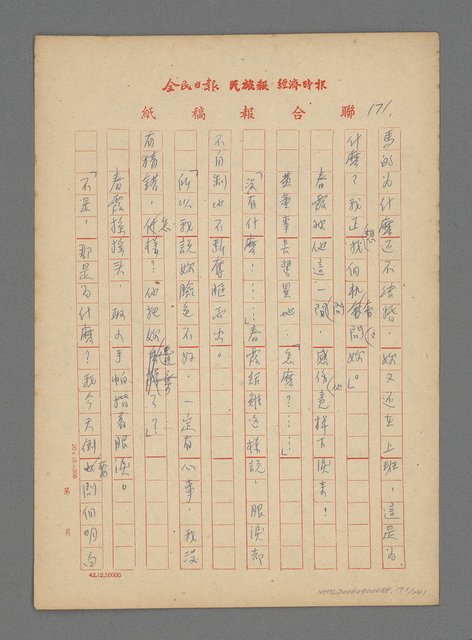 全民日報 民族報 經濟時報
聯合報稿紙
171.
馬的為什麼还不结婚，妳又还在上班，這是為
什麼？我正想找個机會问问妳。」
春霞被他這一問，感傷竟掉下淚来！
黃董事長望望她：「怎麼？……」
「沒有什麼……」春霞話雖這樣說，眼淚却
不自制地不斷奪眶而出。
「所以我說妳臉色不好，一定有心事，我沒
有猜錯，怎樣？他把妳遺棄？？」
春霞搖搖头，取出手帕揩着眼淚。
「不是，那是為什麼？我今天倒要問個明白
20×10=200
第 頁
42.12.50000
NMTL20060900088 171/241